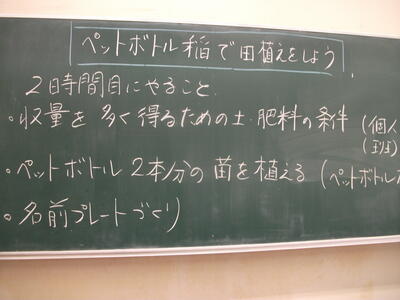 ペットボトル稲で田植えをしよう
2時間目にやること
・収量を多く得るための土・肥料の条件 (個人
(班)
・ペットボトル2本分の苗を植える (ペットボトル
・名前プレートづくり